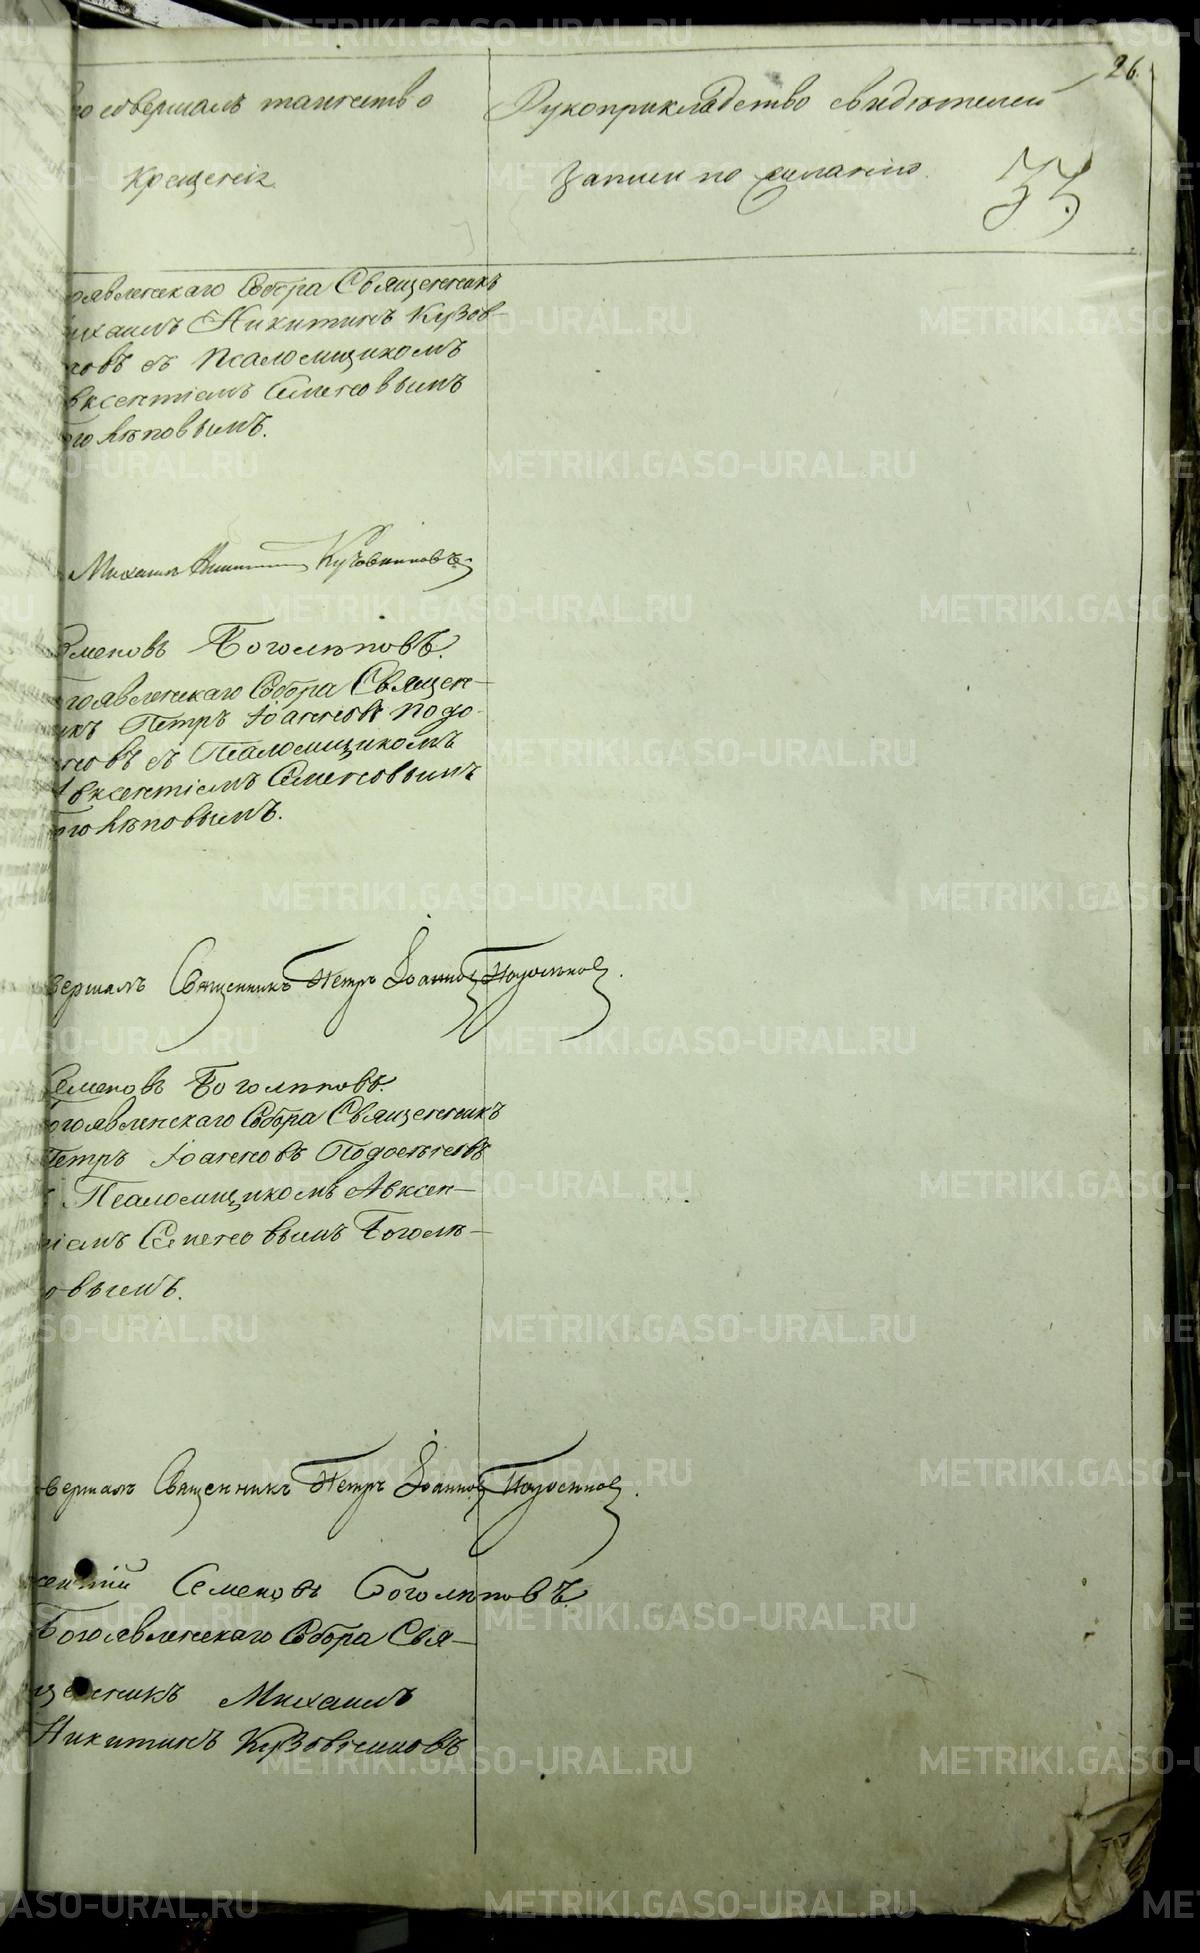 26.
го совершалъ таинство
Рукоприкладство свидѣтелей
Крещенія.
записи по желанію.
33.
оявленскаго Собора Священникъ
ихаилъ Никитинъ Кузов-
овъ съ Псаломщикомъ
вксентіемъ Семеновымъ
оголѣповымъ.
Михаилъ Никитинъ Кузовниковъ
Семеновъ Боголѣповъ.
гоявленскаго Собора Священ-
икъ Петръ Іоанновъ Подо-
новъ съ Псаломщикомъ
Авксентіемъ Семеновымъ
оголѣповымъ.
вершалъ Священникъ Петръ Іоанновъ Подосеновъ.
Семеновъ Боголѣповъ.
огоявленскаго Собора Священникъ
Петръ Іоанновъ Подосеновъ
Псаломщикомъ Авксен-
іемъ Семеновымъ Боголѣ-
овымъ.
вершалъ Священникъ Петръ Іоанновъ Подосеновъ.
сентій Семеновъ Боголѣповъ
Богоявленскаго Собора Свя-
щенникъ Михаилъ
Никитинъ Кузовниковъ
METRIKI.GASO-URAL.RU